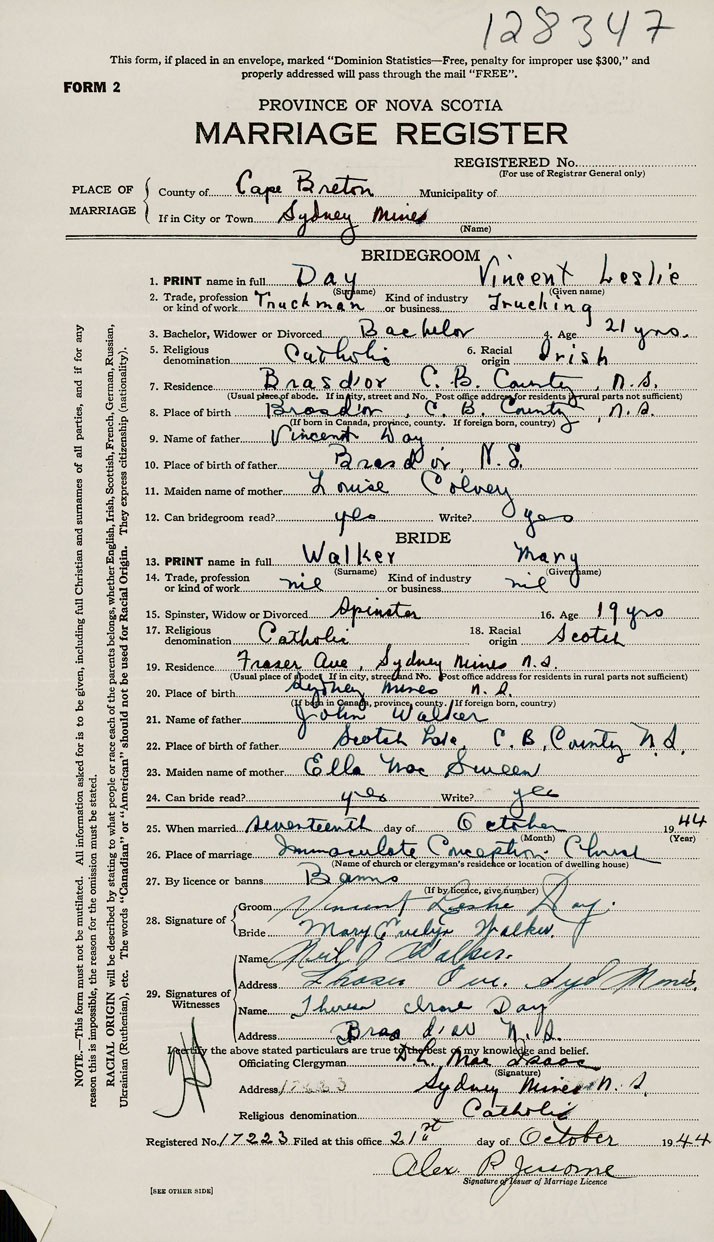 128347
This form, if placed in an envelope, marked "Dominion Statistics—Free, penalty for improper use $300," and
properly addressed will pass through the mail "FREE".
FORM 2
PROVINCE OF NOVA SCOTIA
MARRIAGE REGISTER
REGISTERED No.
(For use of Registrar General only)
PLACE OF MARRIAGE
County of Cape Breton Municipality of
If in City or Town Sydney Mines
(Name)
BRIDEGROOM
1. PRINT name in full Day Vincent Leslie
(Surname) (Given name)
2. Trade, profession or kind of work Truckman Kind of industry or business Trucking
3. Bachelor, Widower or Divorced Bachelor 4. Age 21 yrs.
5. Religious denomination Catholic 6. Racial origin Irish
7. Residence Brasd'or C. B. County, N.S.
(Usual place of abode. If in city, street and No. Post office address for residents in rural parts not sufficient)
8. Place of birth Brasd'or, C. B. County, N.S.
(If born in Canada, province, county. If foreign born, country)
9. Name of father Vincent Day
10. Place of birth of father Brasd'or, N.S.
11. Maiden name of mother Louise Colvey
12. Can bridegroom read? yes Write? yes
BRIDE
13. PRINT name in full Walker Mary
(Surname) (Given name)
14. Trade, profession or kind of work nil Kind of industry or business nil
15. Spinster, Widow or Divorced Spinster 16. Age 19 yrs
17. Religious denomination Catholic 18. Racial origin Scotch
19. Residence Fraser Ave, Sydney Mines N.S.
(Usual place of abode. If in city, street and No. Post office address for residents in rural parts not sufficient)
20. Place of birth Sydney Mines N.S.
(If born in Canada, province, county. If foreign born, country)
21. Name of father John Walker
22. Place of birth of father Scotch C.B. County N.S.
23. Maiden name of mother Ella Mac Sween
24. Can bride read? yes Write? yes
25. When married seventeenth day of October 1944
(Month) (Year)
26. Place of marriage Immaculate Conception Church
(Name of church or clergyman's residence or location of dwelling house)
27. By licence or banns Banns
(If by licence, give number)
28. Signature of
Groom Vincent Leslie Day.
Bride Mary Evelyn Walker.
29. Signatures of Witnesses
Name Neil J Walker.
Address Fraser Ave. Syd Mines.
Name Theresa Day
Address Bras d'or N.S.
I certify the above stated particulars are true to the best of my knowledge and belief.
Officiating Clergyman D.L. Mac Isaac
(Signature)
Address 17223 Sydney Mines N.S.
Religious denomination Catholic
Registered No. 17223 Filed at this office 21st day of October 1944
Alex. P. Jessome
Signature of Issuer of Marriage Licence
[SEE OTHER SIDE]
NOTE.—This form must not be mutilated. All information asked for is to be given, including full Christian and surnames of all parties, and if for any
reason this is impossible, the reason for the omission must be stated.
RACIAL ORIGIN will be described by stating to what people or race each of the parents belongs, whether English, Irish, Scottish, French, German, Russian,
Ukrainian (Ruthenian), etc. The words "Canadian" or "American" should not be used for Racial Origin. They express citizenship (nationality).